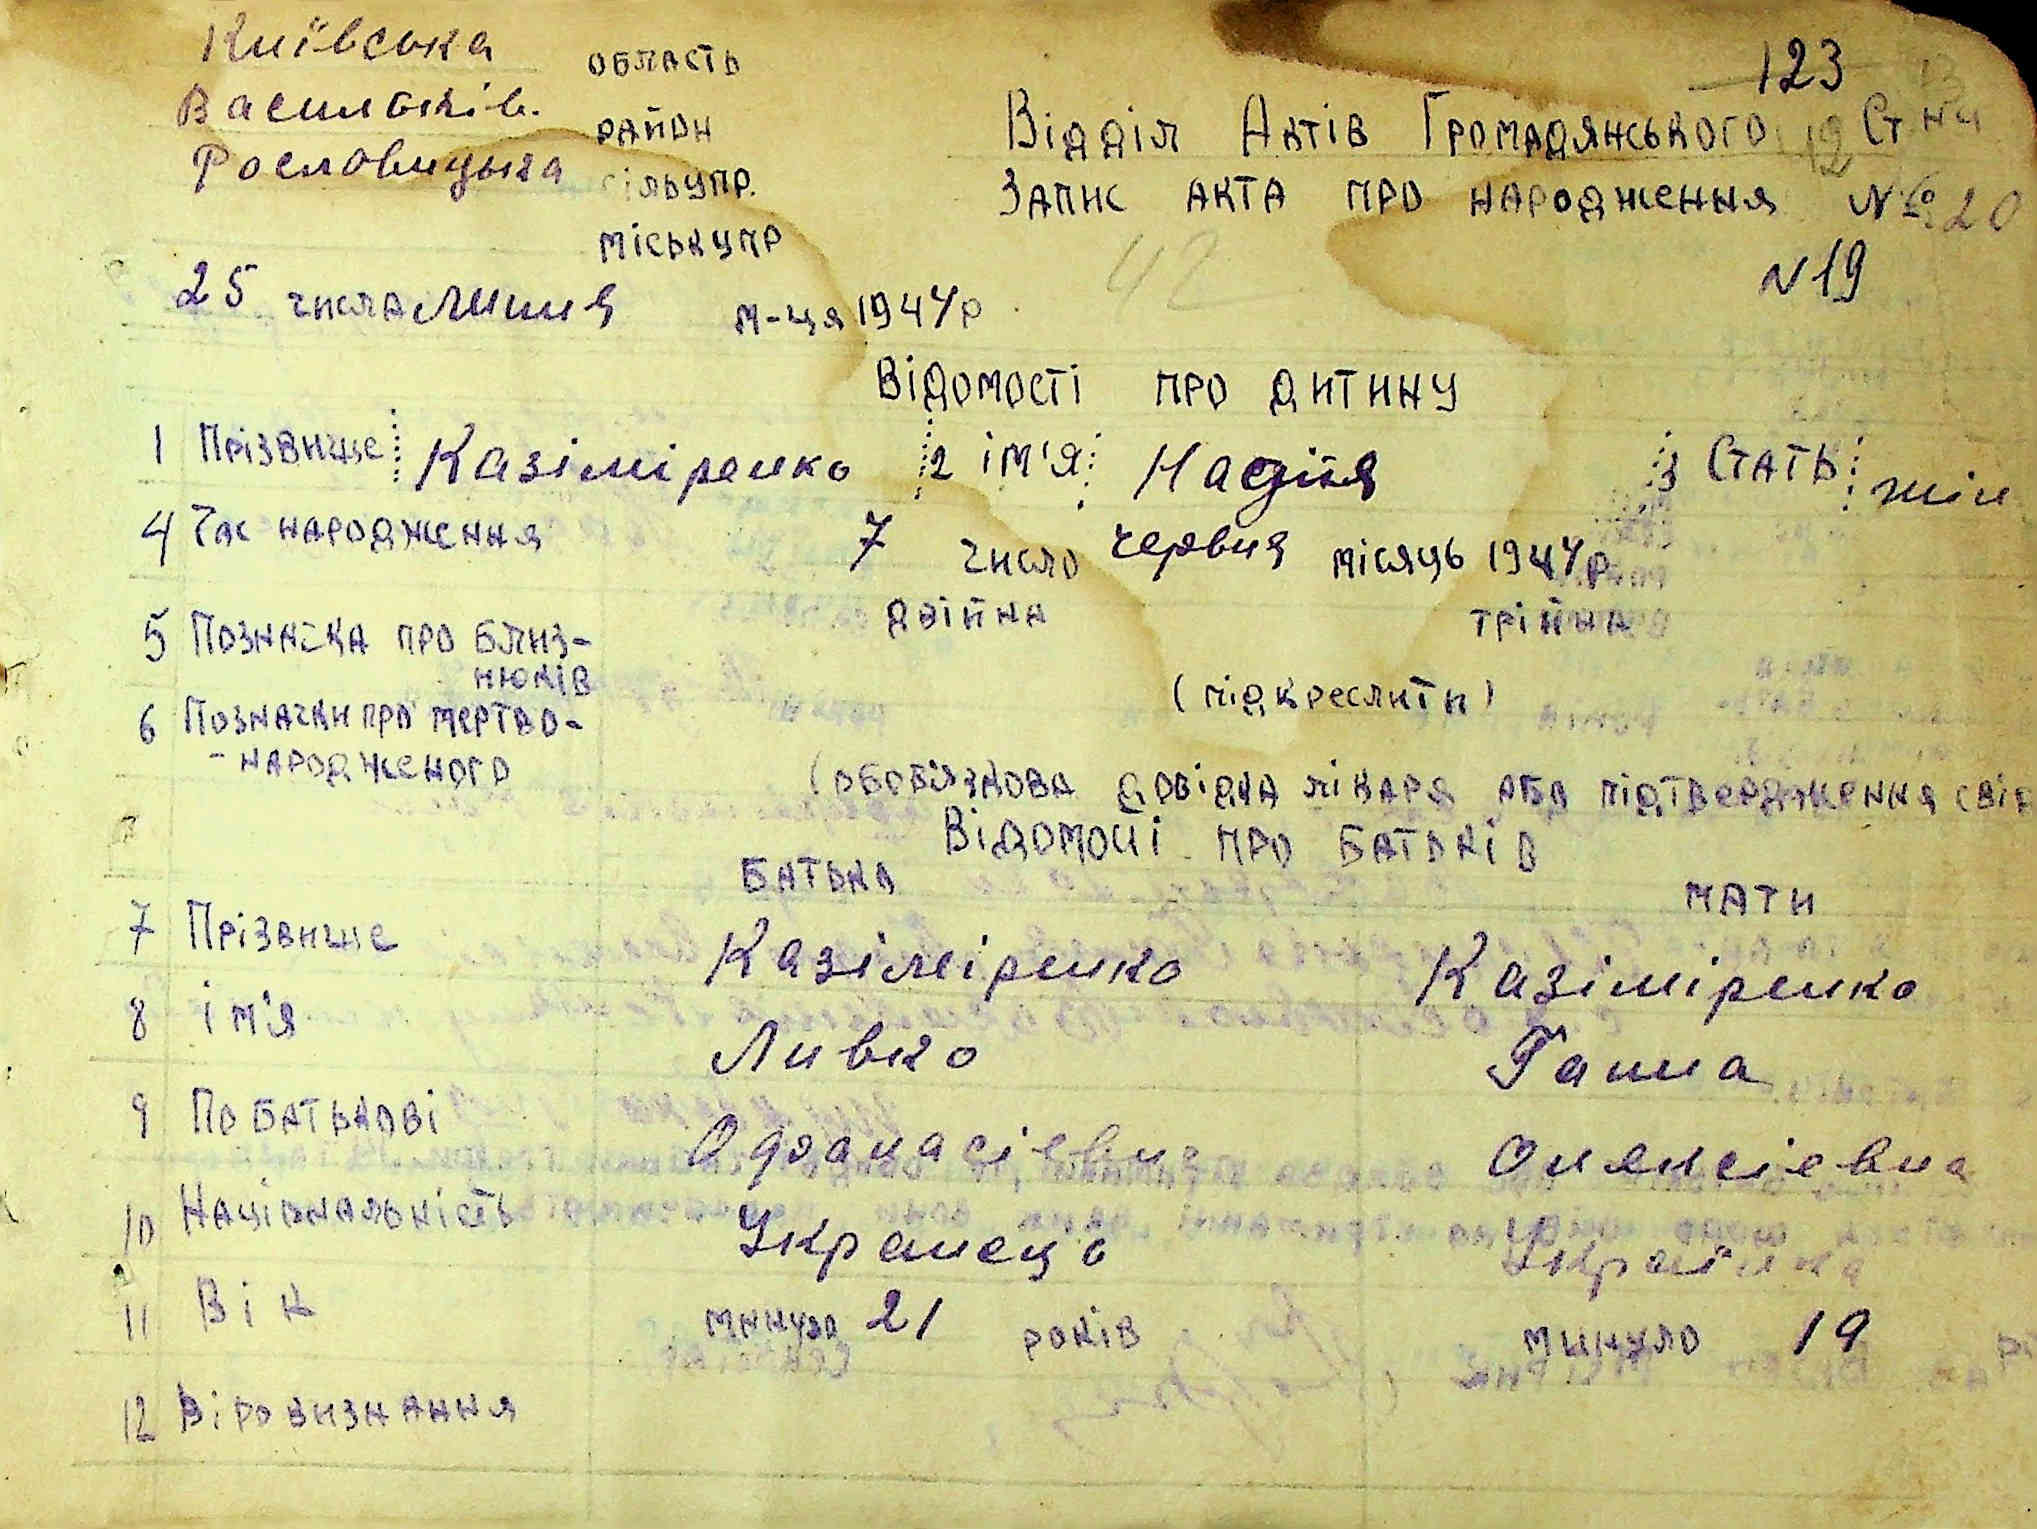 Київська область
Васильків. район
Рословицька сільупр.
міськупр
123
Відділ Актів Громадянського Ст
Запис акта про народження № 20
42
N 19
25 числа липня м-ця 1944 р
Відомості про дитину
1 Прізвище Казіміренко 2 ім'я Надія 3 Стать жін
4 Час народження 7 число червня місяць 1944 р.
5 Позначка про близ- двійна трійна
нюків
(підкреслити)
6 Позначки про мертво-
- народженого
(обов'язкова довідка лікаря або підтвердження свід
Відомості про батьків
батько мати
7 Прізвище Казіміренко Казіміренко
8 ім'я Ливко Ганна
9 По батькові Офанасієвич Олексієвна
10 Національність Українець Українка
11 Вік минуло 21 років минуло 19 рі
12 Віровизнання